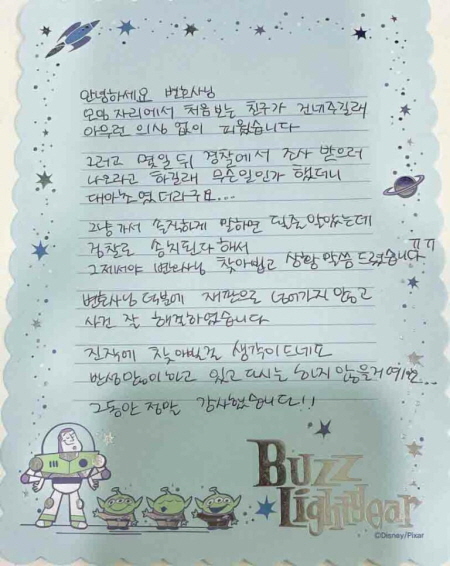 안녕하세요 변호사님
모임 자리에서 처음보는 친구가 건네주길래
아무런 의심 없이 피웠습니다
그러고 몇일 뒤 경찰에서 조사 받으러
나오라고 하길래 무슨일인가 했더니
대마초였더라구요...
그냥 가서 솔직하게 말하면 될줄 알았는데
검찰로 송치된다 해서
그제서야 변호사님 찾아뵙고 상황 말씀 드렸습니다 ㅠㅠ
변호사님 덕분에 재판으로 넘어가지 않고
사건 잘 해결하였습니다
진작에 찾아뵐걸 생각이드네요
반성많이하고 있고 다시는 하지 않을거예요...
그동안 정말 감사했습니다!!
BUZZ
Lightyear
©Disney/Pixar